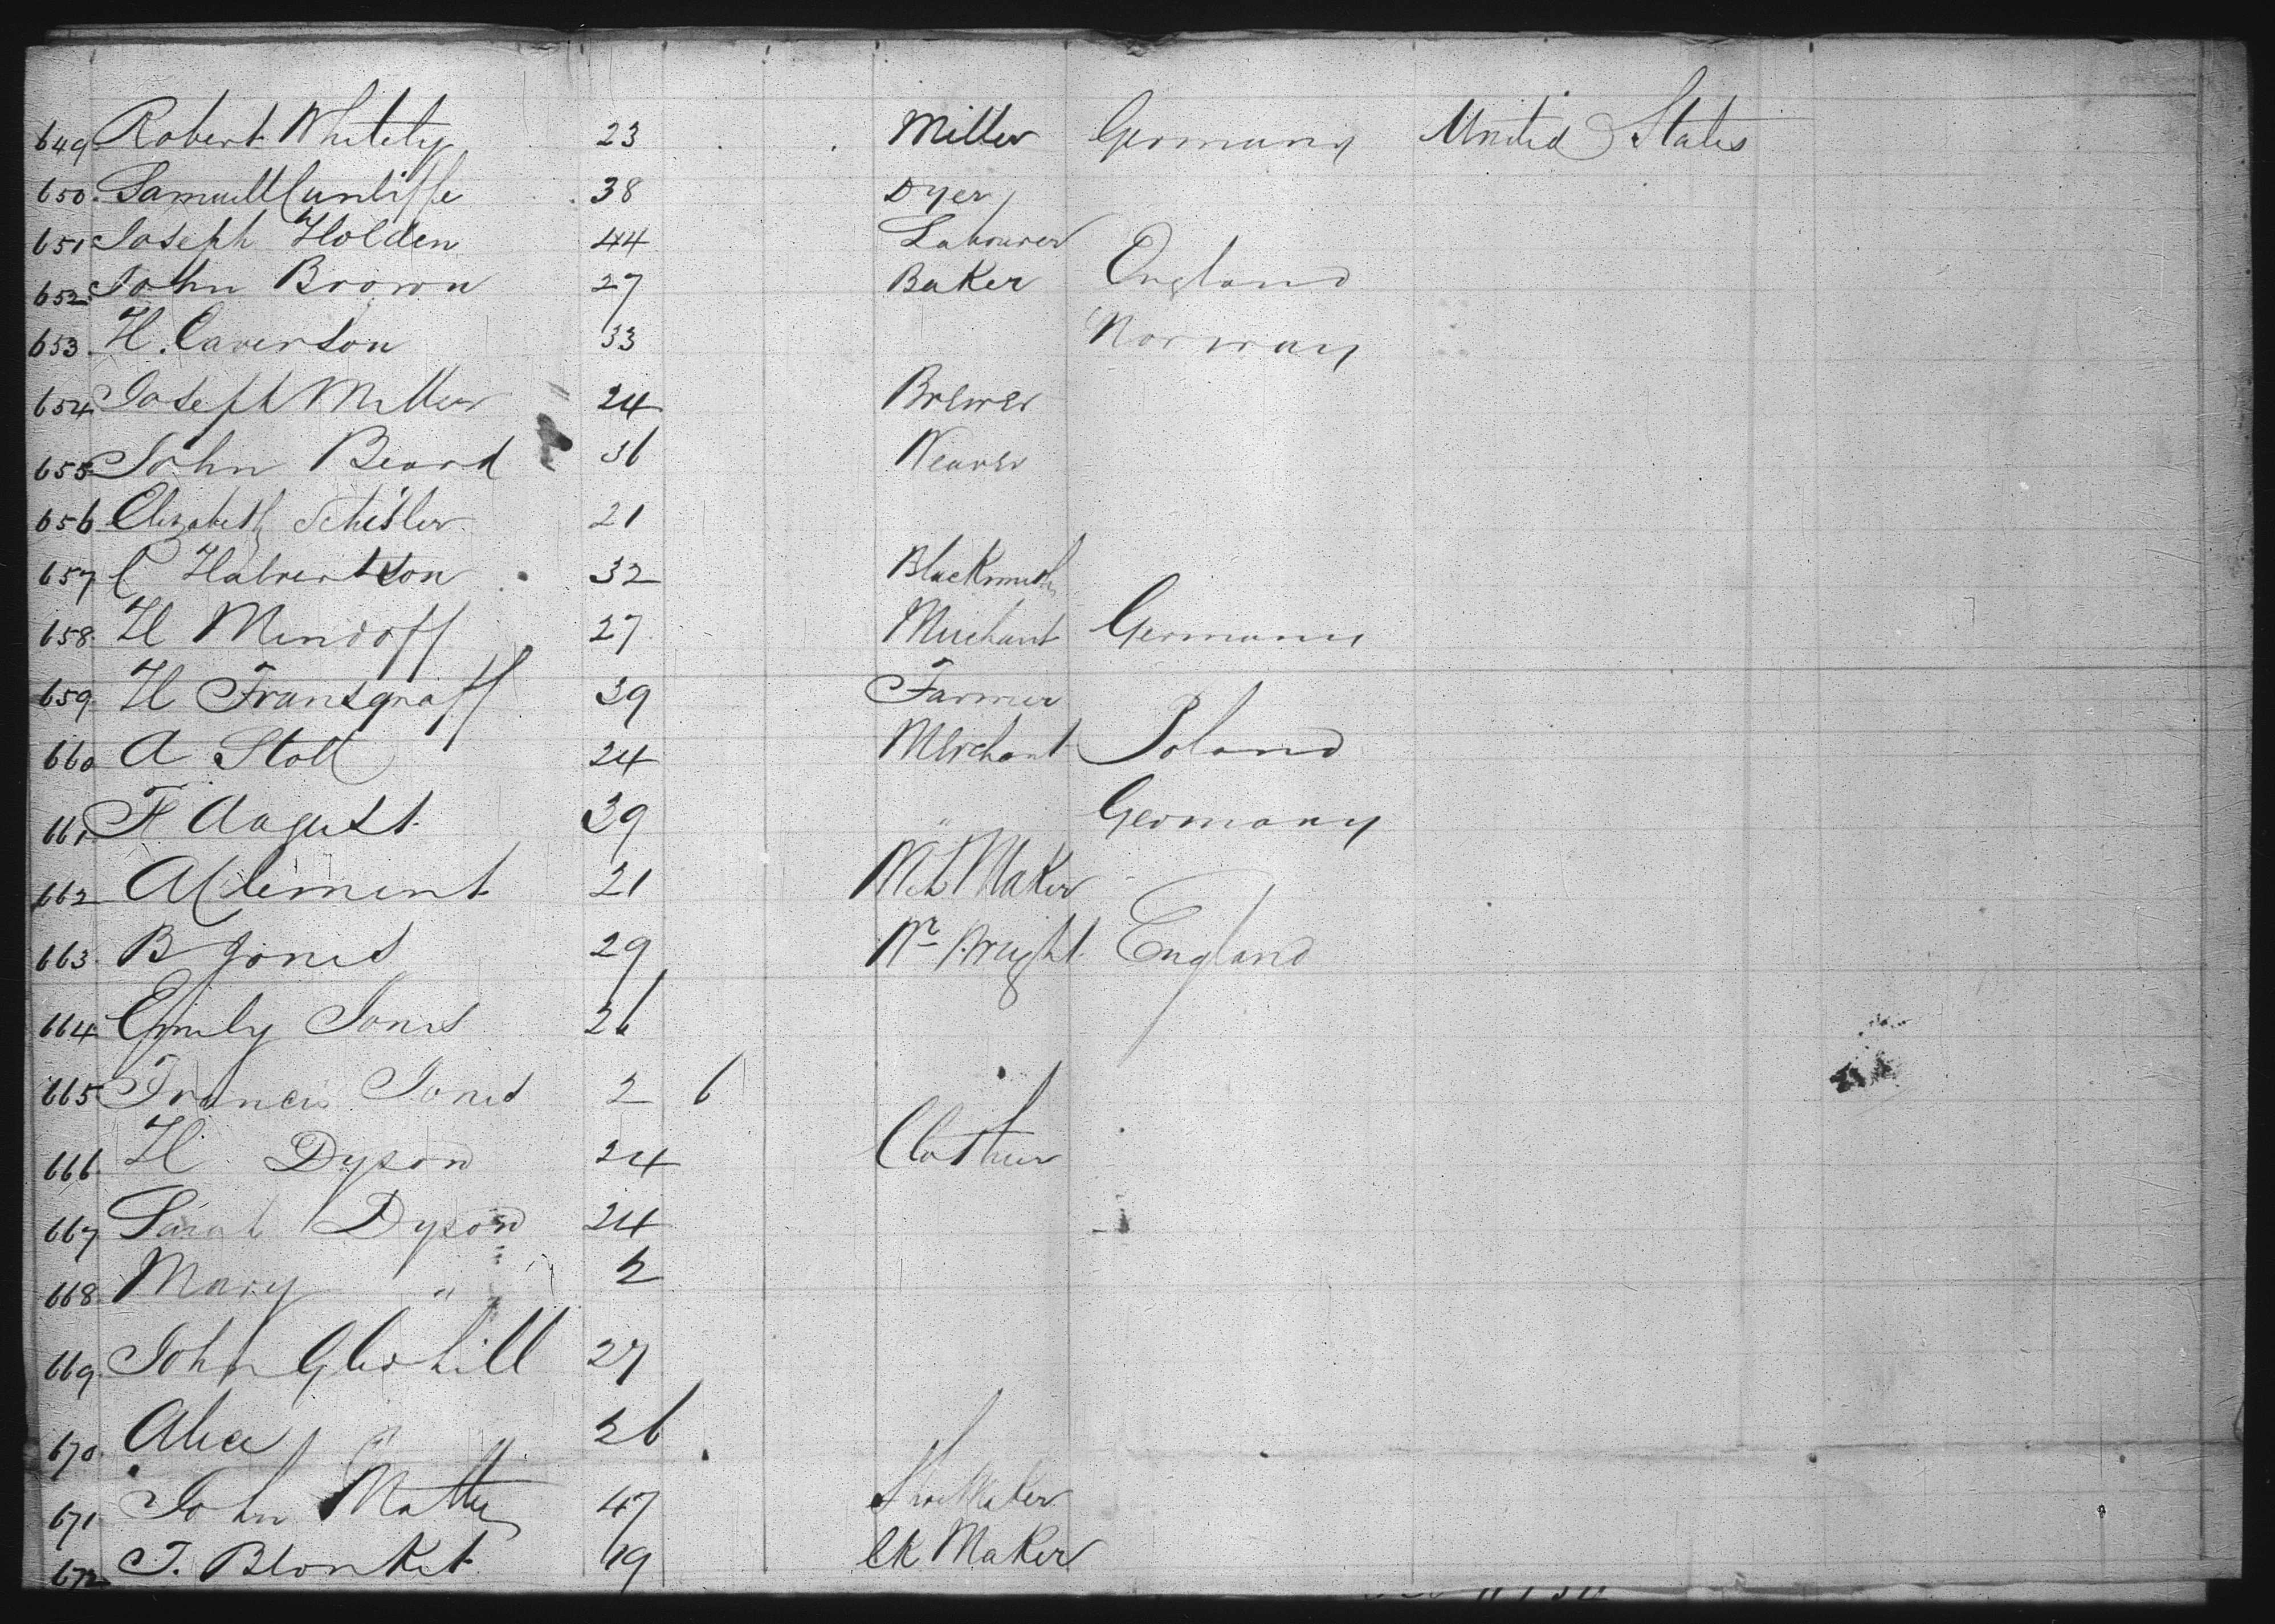 649 Robert Whitely 23 Miller Germany United States
650. Samuell Cunliffe 38 Dyer
651 Joseph Holden 44 Labourer
652. John Brown 27 Baker England
653. H. Caverson 33 Norway
654. Joseph Miller 24 Brewer
655. John Beard 36 Weaver
656. Elizabeth Schisler 21
657 C Halvertson 32 Blacksmith
658. H Mendoff 27 Merchant Germany
659. H Fransgraff 39 Farmer
660 A Stoll 24 Merchant Poland
661. F August 39 " Germany
662 A Clement 21 Maker
663. B Jones 29 Wr Wright England
664. Emily Jones 26
665 Francis Jones 2 6
666. H Dyson 24 Clothier
667. Sarah Dyson 24
668. Mary " 2
669. John Gledhill 27
670. Alice 26
671. John 47 Shoe Maker
672 T. Blonket 19 Ck Maker